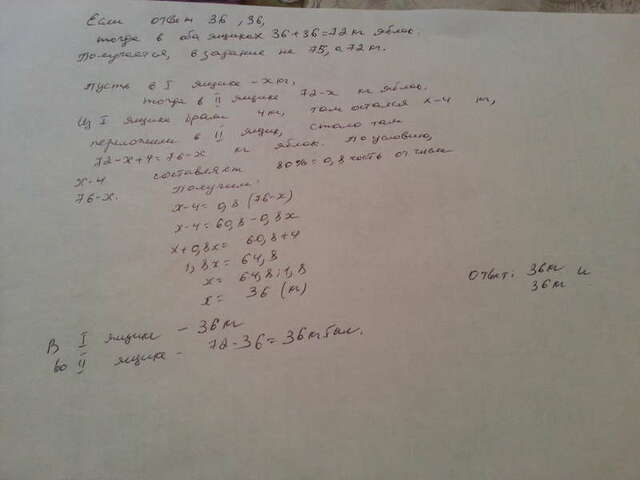 Если ответ 36, 36,
тогда в оба ящиках 36+36=72 кг яблок.
Получается, в задание не 75, а 72 кг.
Пусть в I ящике - х кг,
тогда в II ящике 72-х кг яблок.
Из I ящика брали 4 кг, там остался х-4 кг,
переложили в II ящик, стало там
72-х+4=76-х кг яблок. По условию,
х-4 составляет 80%=0,8 часть от числа
76-х. Получим:
х-4=0,8(76-х)
х-4=60,8-0,8х
х+0,8х=60,8+4
1,8х=64,8
х=64,8:1,8
х=36 (кг)
Ответ: 36кг и
36кг
В I ящике - 36кг
во II ящике - 72-36=36кг